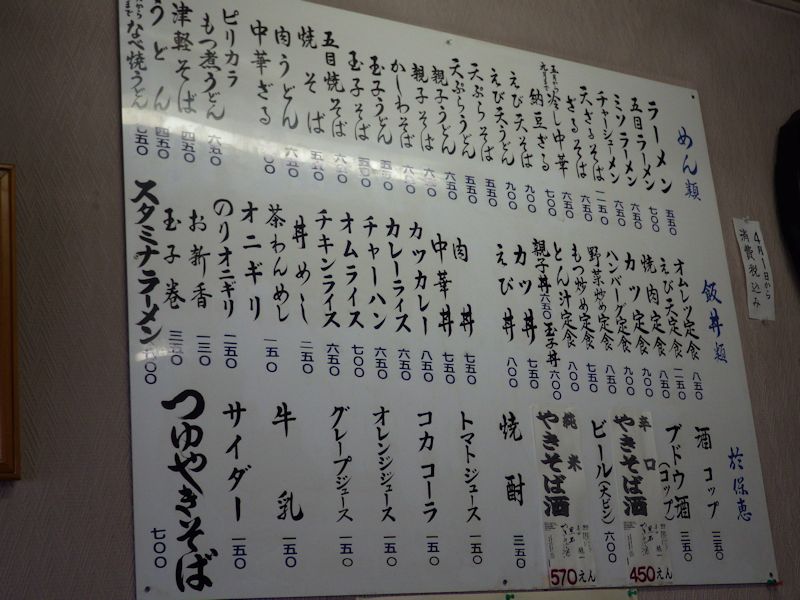 めん類
ラーメン 五五〇
五目ラーメン 七〇〇
ミソラーメン 六五〇
チャーシューメン 六五〇
天ざるそば 一一五〇
ざるそば 六五〇
冷し中華 七〇〇
納豆ざる 九〇〇
えび天そば 九〇〇
えび天うどん
天ぷらそば 五五〇
天ぷらうどん 五五〇
親子うどん 六五〇
親子そば 六五〇
かしわそば 六五〇
玉子うどん 五五〇
玉子そば 五〇〇
五目焼そば 六五〇
焼そば 五五〇
肉うどん 六五〇
中華ざる
ピリカラもつ煮うどん 六五〇
津軽そば 四五〇
うどん 四五〇
なべ焼うどん 七五〇
飯丼類
オムレツ定食 八五〇
えび天定食 一一五〇
焼肉定食 八五〇
カツ定食 九〇〇
ハンバーグ定食 九〇〇
野菜炒め定食 七五〇
もつ炒め定食 八〇〇
とん汁定食 六〇〇
親子丼 六五〇 玉子丼
カツ丼 八〇〇
えび丼 八〇〇
肉丼 七五〇
中華丼 七五〇
カツカレー 八五〇
カレーライス 六五〇
チャーハン 六五〇
オムライス 七五〇
チキンライス 六五〇
丼めし 二五〇
茶わんめし
オニギリ 一五〇
のりオニギリ 二五〇
お新香 一二〇
玉子巻 三五〇
スタミナラーメン 八〇〇
於保恵
酒 コップ 三五〇
ブドウ酒(コップ) 三五〇
辛口
やきそば酒
450えん
ビール(大ビン) 六〇〇
純米
やきそば酒
570えん
焼酎 三五〇
トマトジュース 一五〇
コカコーラ 一五〇
オレンジジュース 一五〇
グレープジュース 一五〇
牛乳 一五〇
サイダー 一五〇
つゆやきそば 七〇〇
4月1日から
消費税込み